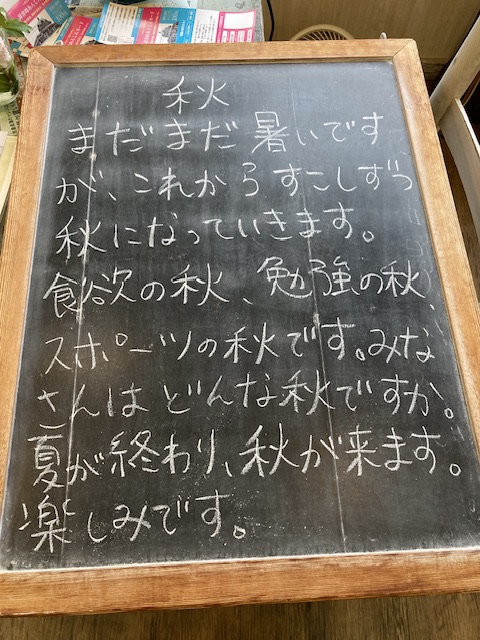 秋
まだまだ暑いです
が、これからすこしずつ
秋になっていきます。
食欲の秋、勉強の秋
スポーツの秋です。みな
さんはどんな秋ですか。
夏が終わり、秋が来ます。
楽しみです。